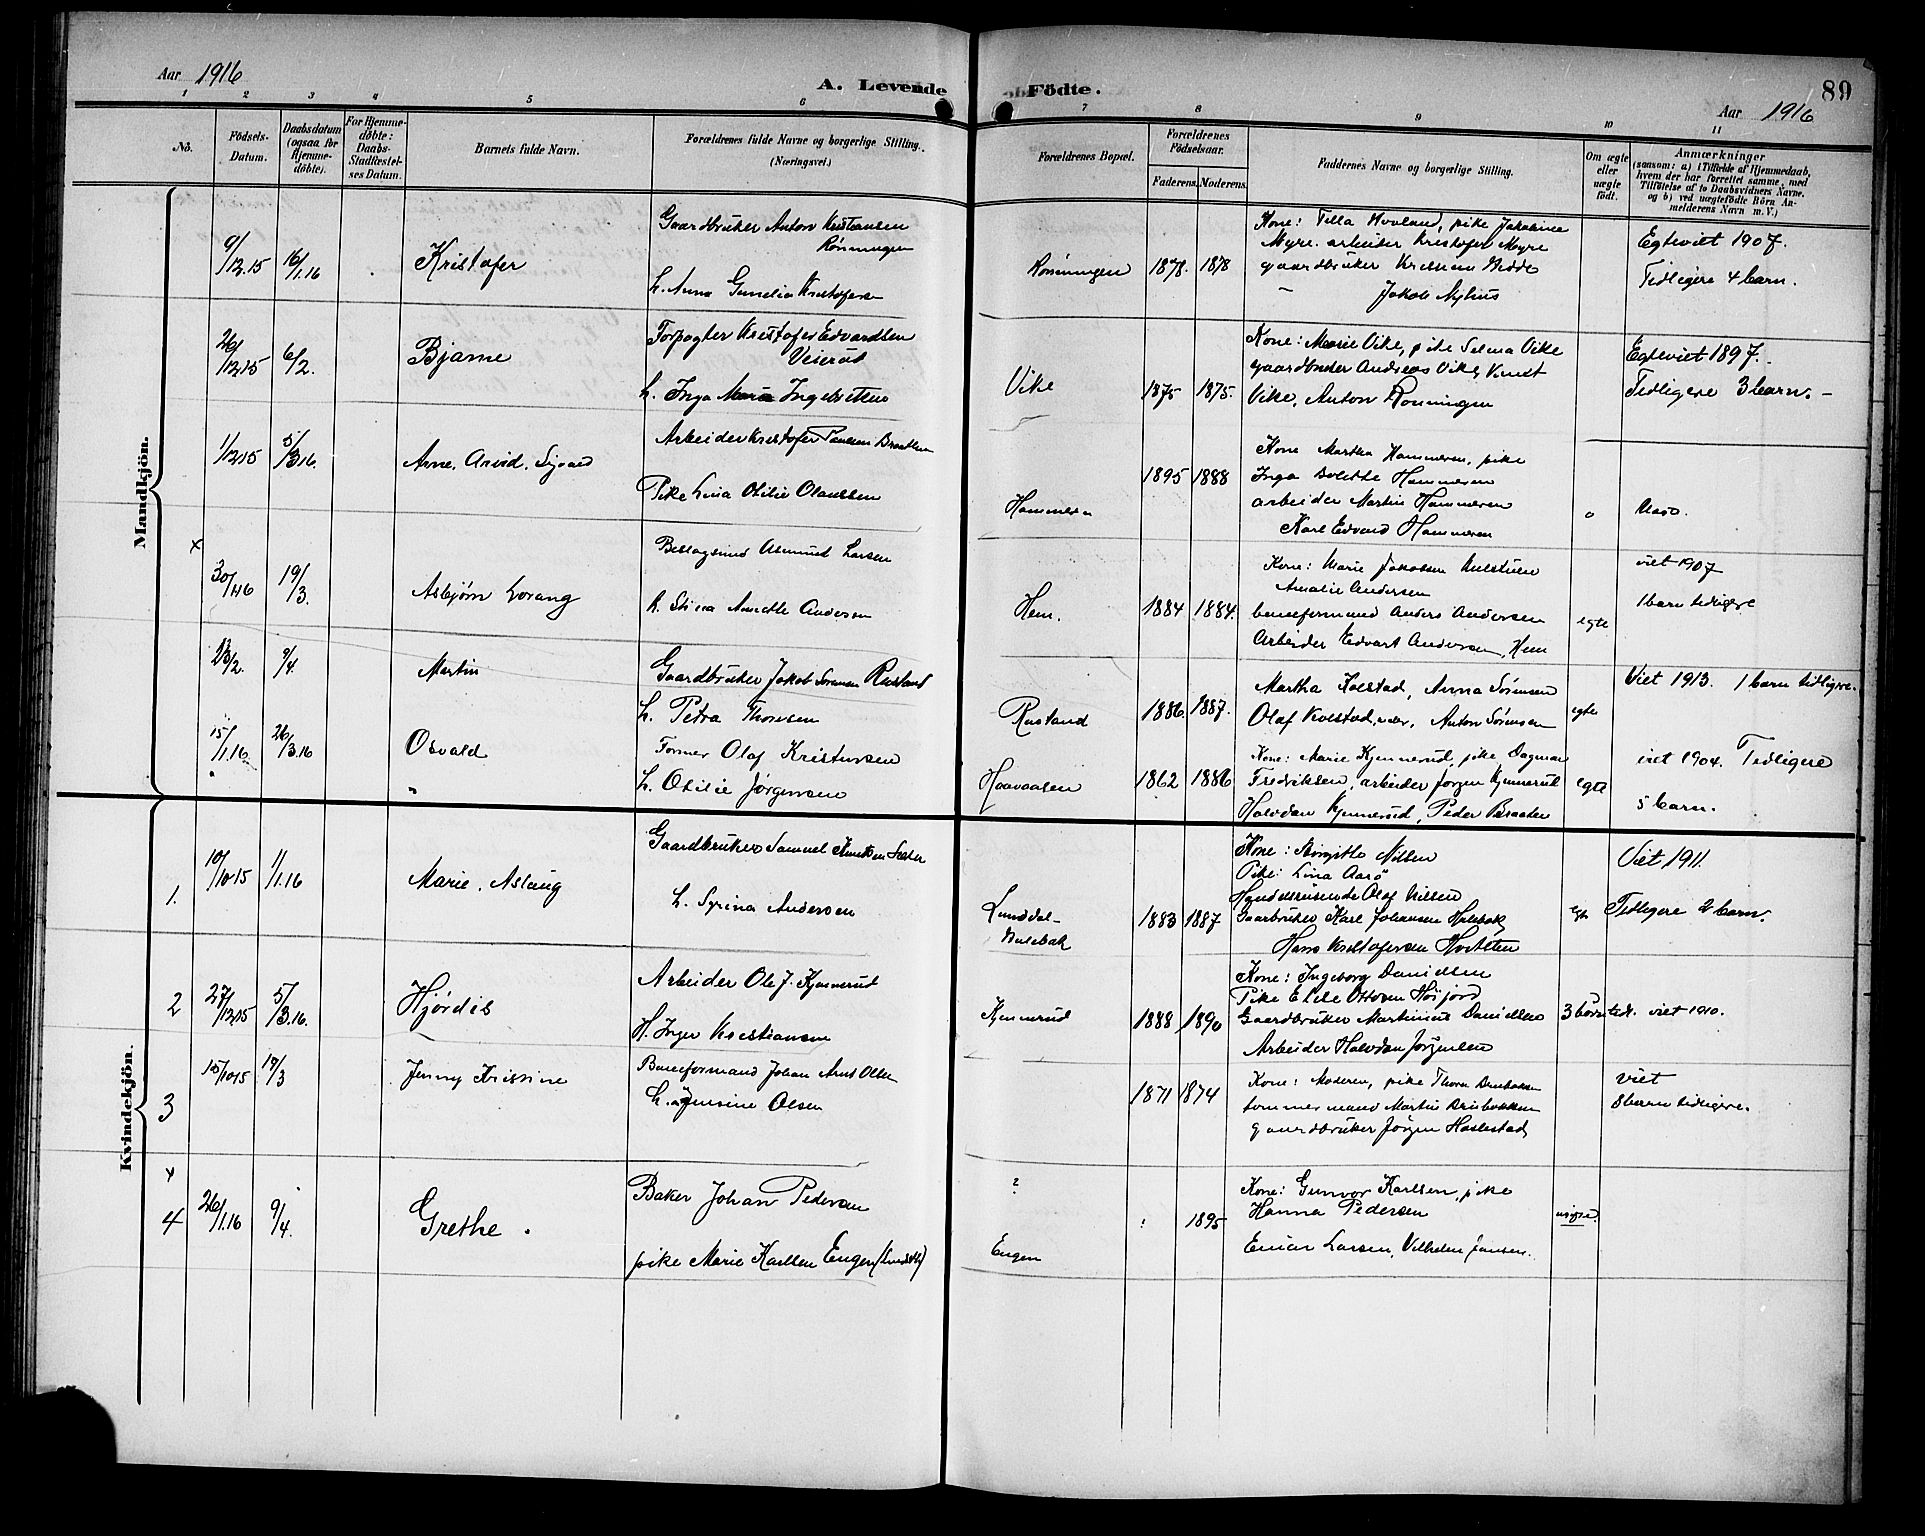 Aar 1916
A. Levende Födte.
89
Aar 1916
1 2 3 4 5 6 7 8 9 10 11
No.
Födsels-Datum.
Daabsdatum (ogsaa for Hjemme-døbte).
For Hjemme-døbte: Daabs-Stadfæstel-ses Datum.
Barnets fulde Navn.
Forældrenes fulde Navne og borgerlige Stilling. (Næringsvei.)
Forældrenes Bopæl.
Forældrenes Födselsaar.
Faderens. Moderens.
Faddernes Navne og borgerlige Stilling.
Om ægte eller uægte født.
Anmærkninger
(saasom: a) i Tilfælde af Hjemmedaab, hvem der har forrettet samme, med Tilføielse af to Daabsvidners Navne, og b) ved uægtefödte Börn Anmelderens Navn m. V.)
Mandkjön.
9/12.15 16/1.16 Kristofer
Gaardbruker Anton Kristiansen
Rönningen
h. Anna Gunelia Kristofersen
Rönningen 1878. 1878
Kone: Tilla Hovland, pike Jakobine
Myre. arbeider Kristofer Myre
gaardbruker
Jakob Nyhus
Egteviet 1907.
Tidligere 4 barn.
26/12.15 6/2. Bjarne
Forpagter Kristofer Edvardsen
Veierød
h. Inga Maria Ingebretsen
Vike 1875 1875.
Kone: Marie Vike, pike Selma Vike
gaardbruker Andreas Vike, Knut
Vike, Anton Rönningen
Egteviet 1897.
Tidligere 3 barn. -
1/12.15 5/3.16. Arne. Arvid. Sigvard
Arbeider Kristofer Paulsen Braathen
Pike Lina Otilie Olaussen
Hammeren 1895 1888
Kone Martha Hammeren, pike
Inga Bolette Hammeren
arbeider Martin Hammeren
Karl Edvard Hammeren
0
x
30/1.16 19/3. Asbjørn Lorang
Asmund Larsen
h. Stina Annette Andersen
Hem. 1884 1884.
Kone: Marie Jakobsen
Amalie Andersen
baneformand Anders Andersen
Arbeider Edvart Andersen, Hem
egte
viet 1907
1 barn tidligere
23/2. 9/4. Martin
Gaardbruker Jakob Sørensen Rustand
h. Petra Thoresen
Rustand 1886. 1887.
Martha Kolstad, Anna Sørensen
Olaf Kolstad, Anton Sørensen
egte
Viet 1913. 1 barn tidligere.
15/1.16 26/3.16 Osvald
Former Olaf Kristensen
h. Otilie Jørgensen
Haavaasen 1862 1886
Kone: Marie Kjennerud, pike Dagmar
Fredriksen, arbeider Jørgen Kjennerud
Halvdan Kjennerud, Peder Braaten
egte
viet 1904. Tidligere
5 barn.
Kvindekjön.
1. 10/10.15 1/1.16 Marie. Aslaug
Gaardbruker Samuel Knutsen Sæter
h. Syrina Andersen
Lunddal-
Hulebak 1883 1887
Kone: Birgitte Nilsen
Pike: Lina Aarö
Handelsreisende Olaf Nilsen
Gaarbruker Karl Johansen Hulebak
Hans Kristofersen Hvatsten
egte
Viet 1911.
Tidligere 2 barn.
2 27/12.15 5/3.16. Hjørdis
Arbeider Ole J. Kjennerud
H. Inger Kristiansen
Kjennerud 1888 1890
Kone: Ingeborg Danielsen
Pike Ottesen Høijord
Gaardbruker Martinius Danielsen
Arbeider Halvdan Jørgensen
3 barn tidl. viet 1910.
3 15/10.15 19/3 Jenny Kristine
Baneformand Johan Arnt Olsen
h. Olsen
1871 1874
Kone: Moderen, pike Thora
tømmermand Martin
gaardbruker Jørgen Haslestad
viet
8 barn tidligere.
x
4 26/1.16 9/4. Grethe.
Baker Johan Pedersen
pike Marie Karlsen Engen
?
Engen : 1895
Kone: Gunvor Karlsen, pike
Hanna Pedersen
Einar Larsen, Vilhelm Jansen.
uegte.